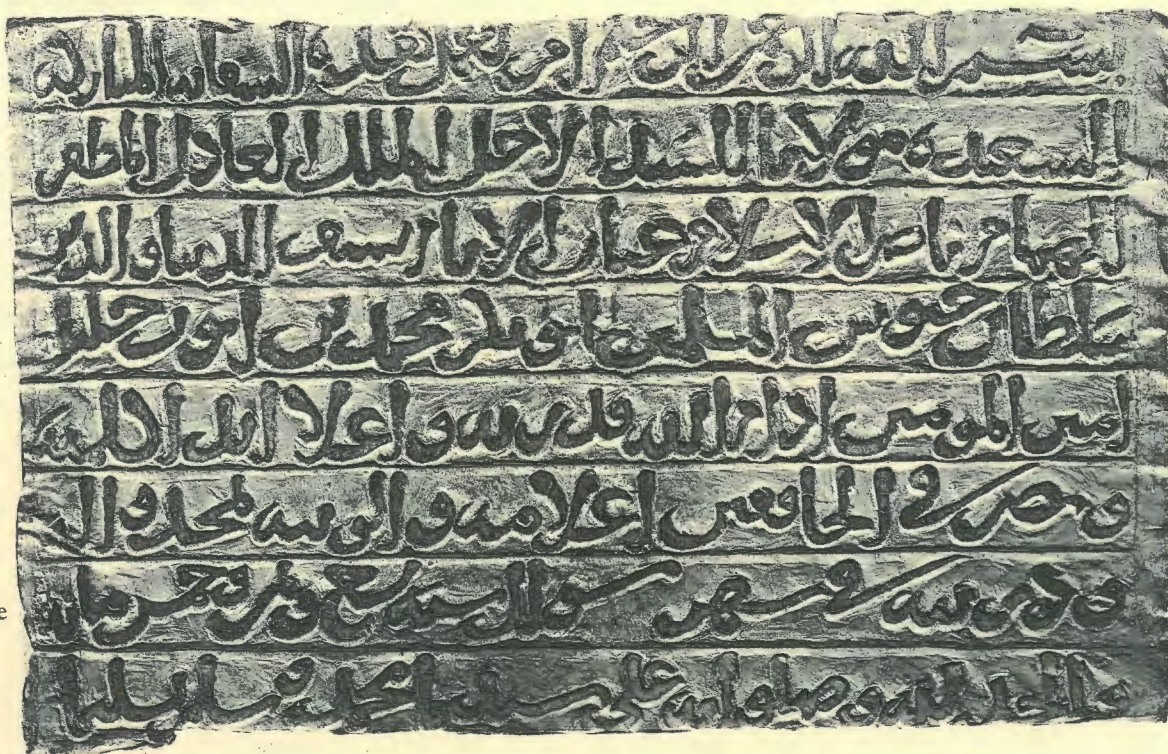 بسم الله الرحمن الرحيم امر بعمل هذه السقاية المباركة
السعيدة مولانا السيد الاجل الملك العادل المظفر
ناصر الاسلام جمال الانام سيف الدنيا والدين
سلطان جيوش المسلمين ابو بكر محمد بن ايوب خليل
امير المومنين ادام الله قدرته واعلا ابدا كلمته
ونصر في الخافقين اعلامه والويته بمحمد واله
وعترته في شهر شوال سنة وخمس مايه
والحمد لله وصلواته على سيدنا محمد